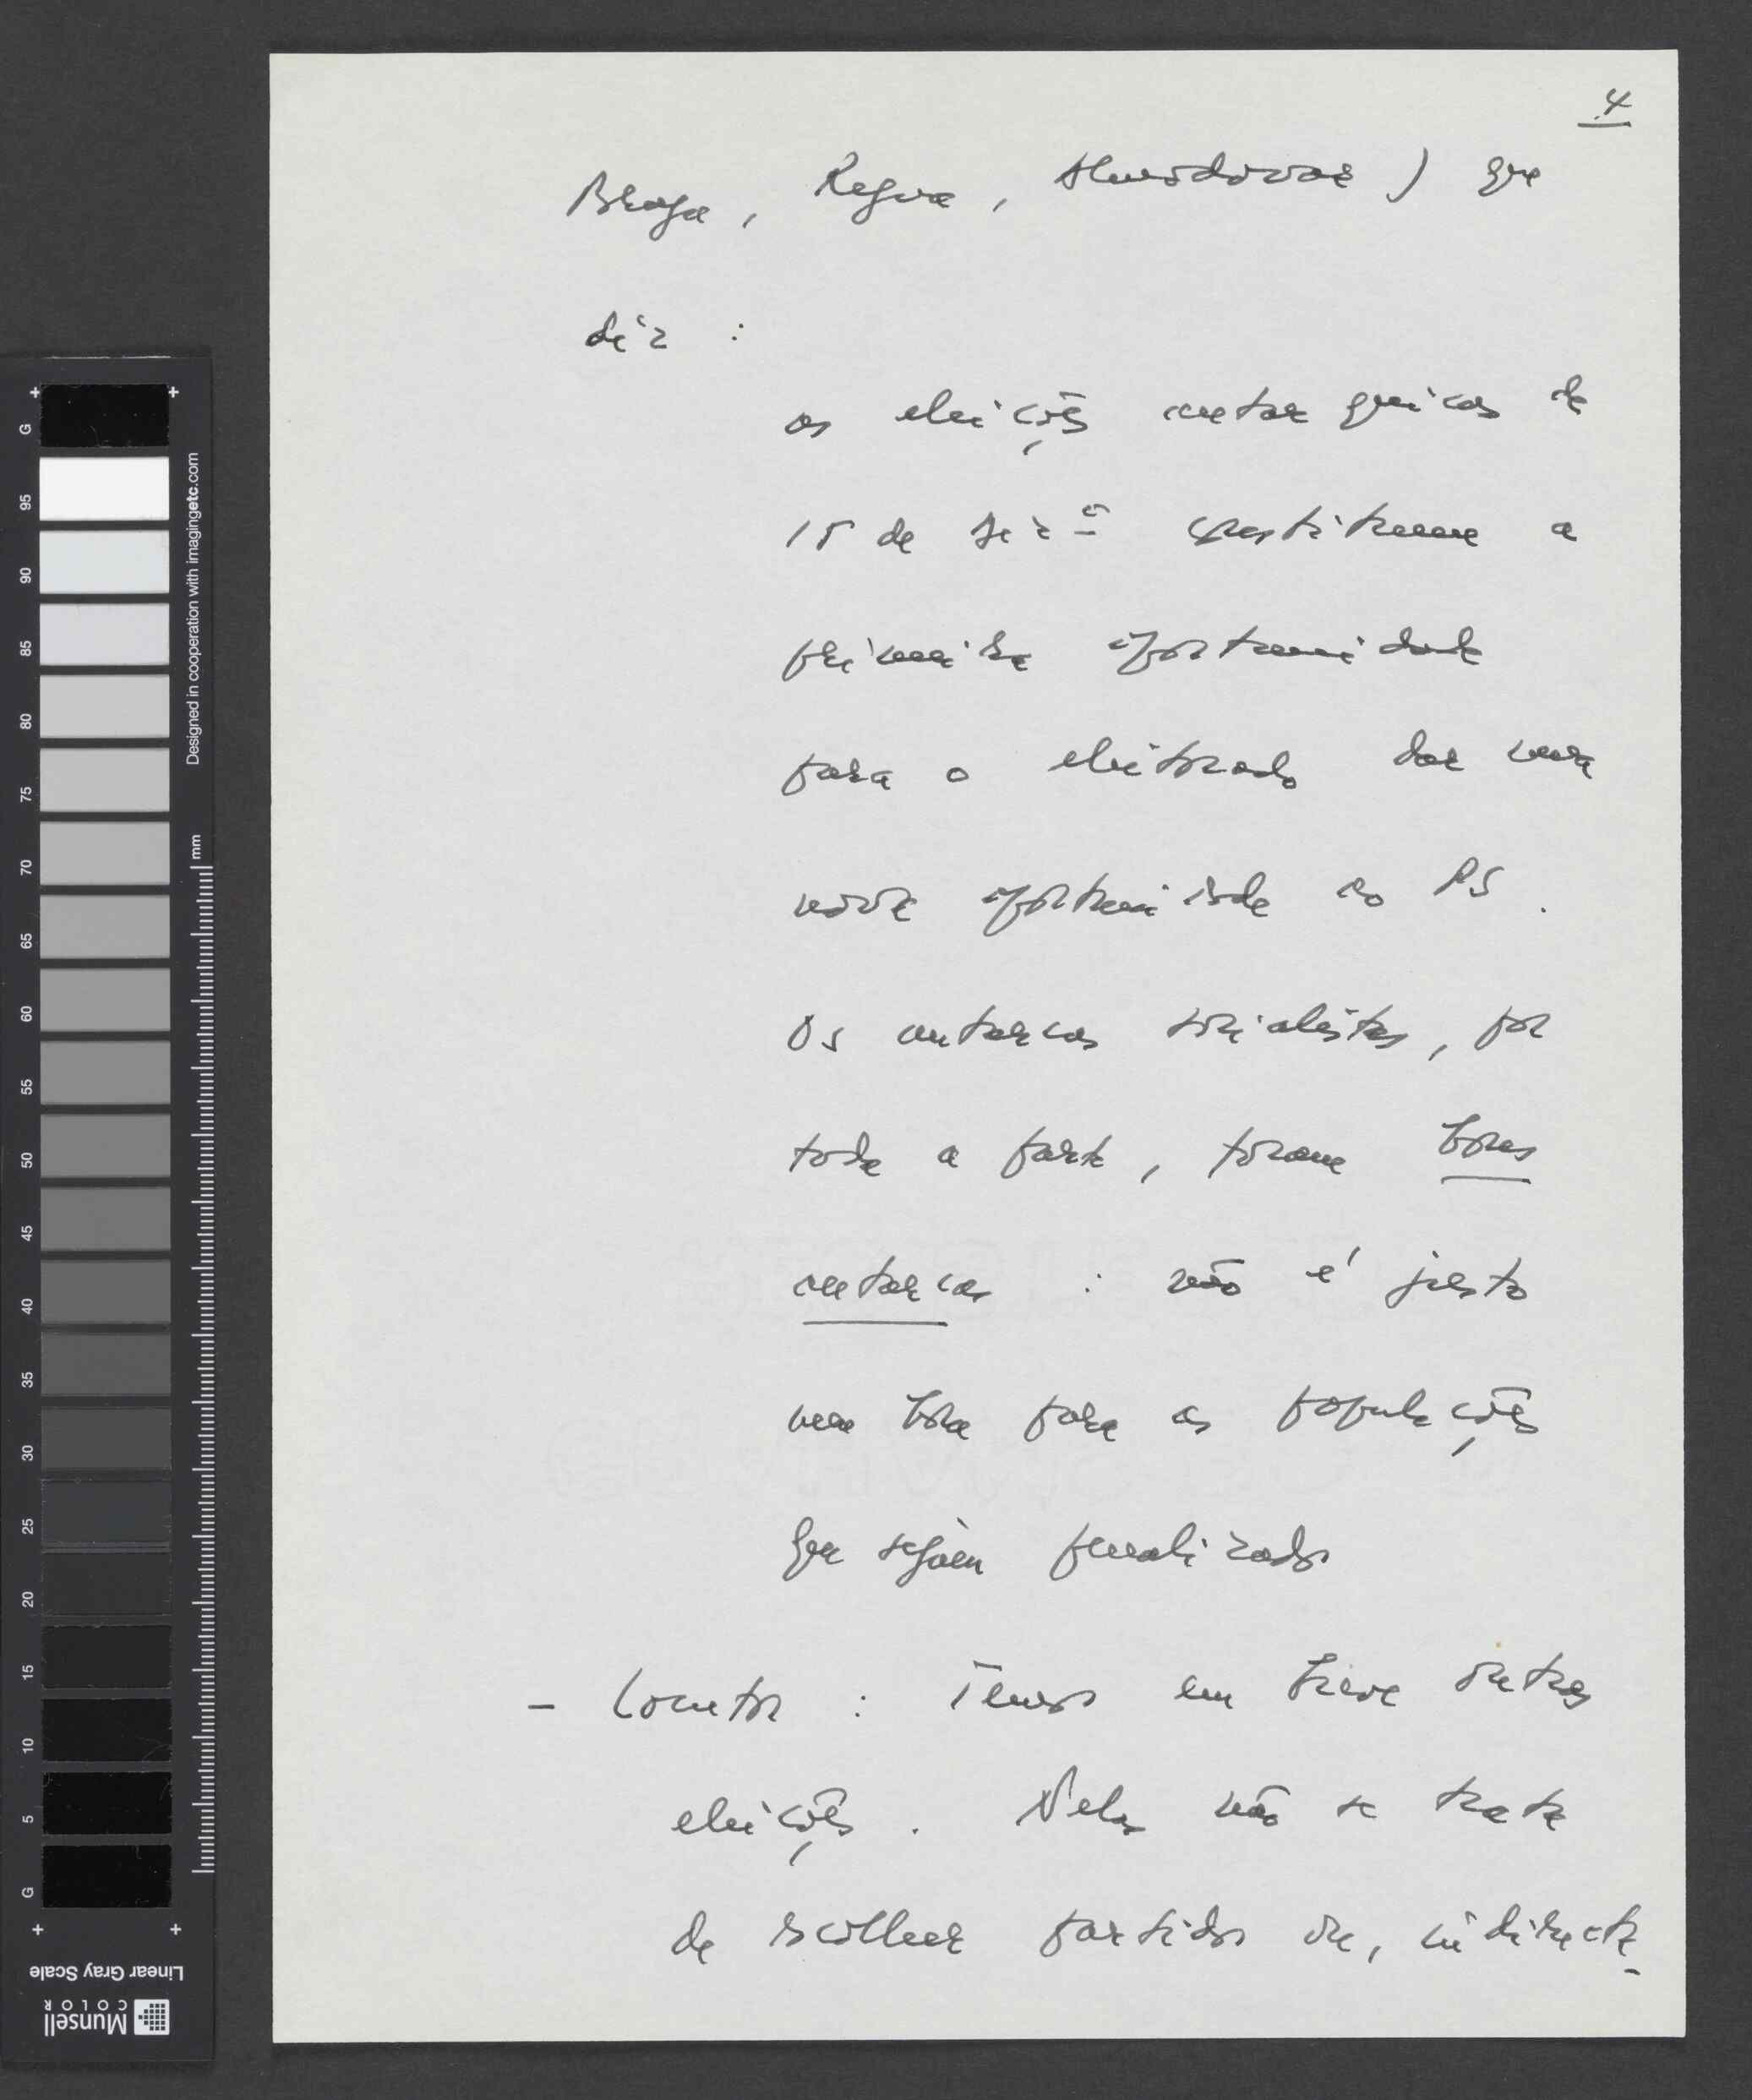 4
Braga, Regua, Almodovar) que
diz :
as eleições autarquicas de
15 de Dezº constituem a
primeira oportunidade
para o eleitorado dar uma
nova oportunidade ao PS.
Os autarcas socialistas, por
toda a parte, foram bons
autarcas : não é justo
nem bom para as populações
que sejam penalizados
- Locutor : Temos em breve outras
eleições. Nelas não se trata
de escolher partidos ou, indirecta-
G 5 10 15 20 25 30 35 40 45 50 55 60 65 70 75 80 85 90 95 G
mm
Designed in cooperation with imagingetc.com
Linear Gray Scale
Munsell
COLOR